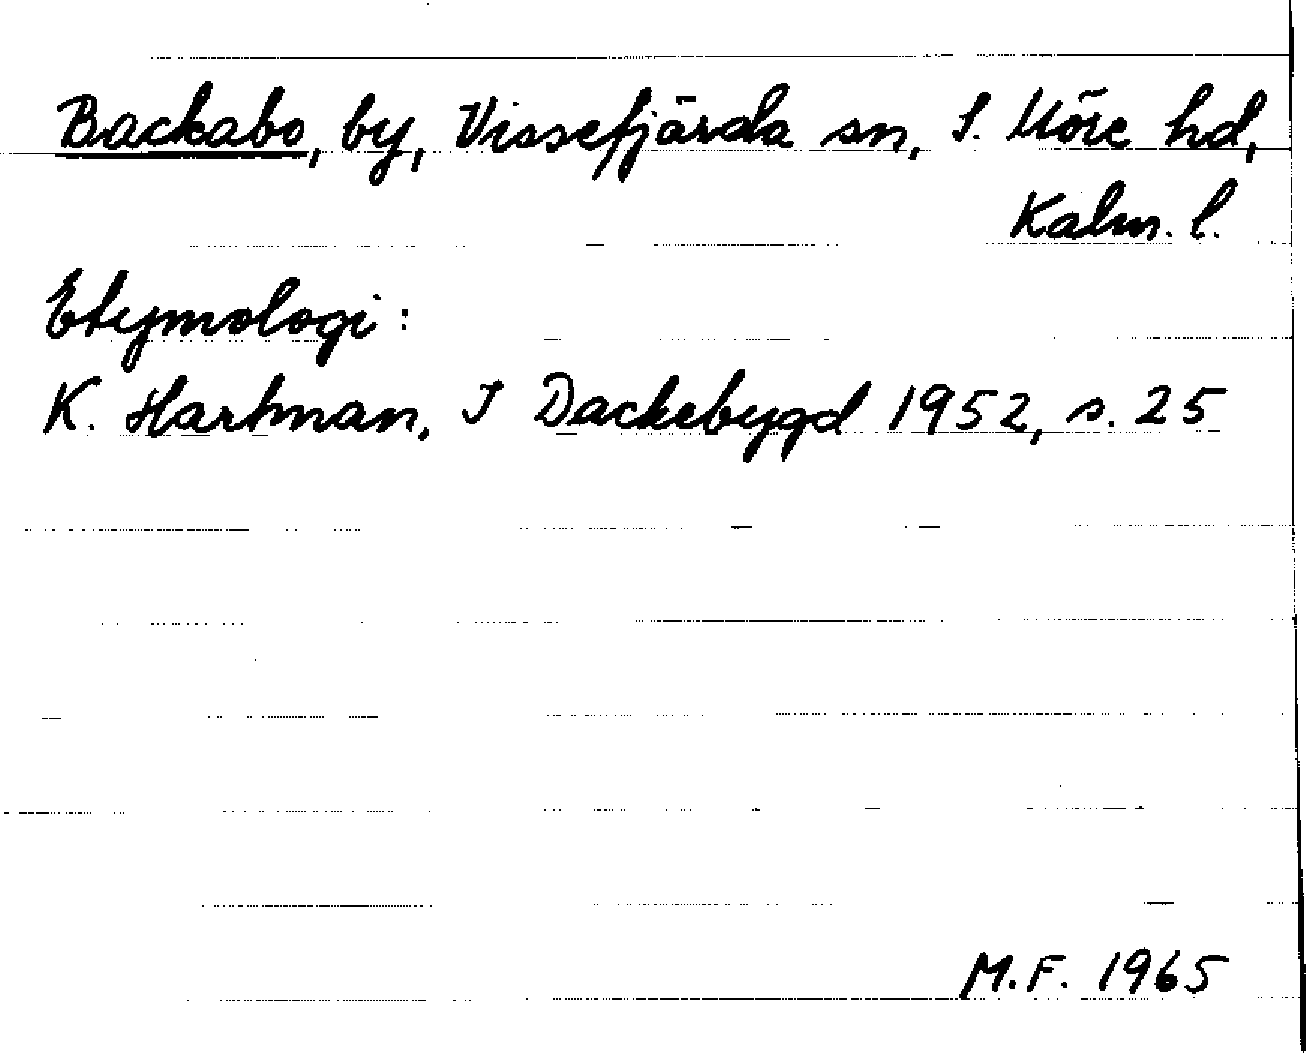 Backabo, by, Vissefjärda sn, S. Möre hd,
Kalm. l.
Etymologi:
K. Hartman, I Dackebygd 1952, s. 25
M.F. 1965